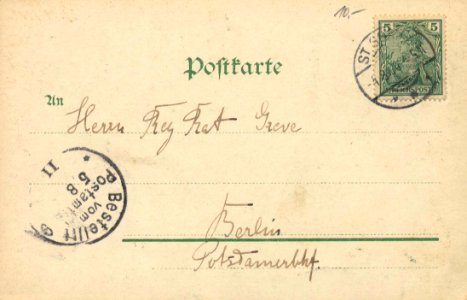 10.-
5 5
ST.
REICHSPOST
Postkarte
An
Herrn Reg Rat Greve
11
Bestellt
vom
Postamte
5 8
Berlin
Potsdamerbhf.